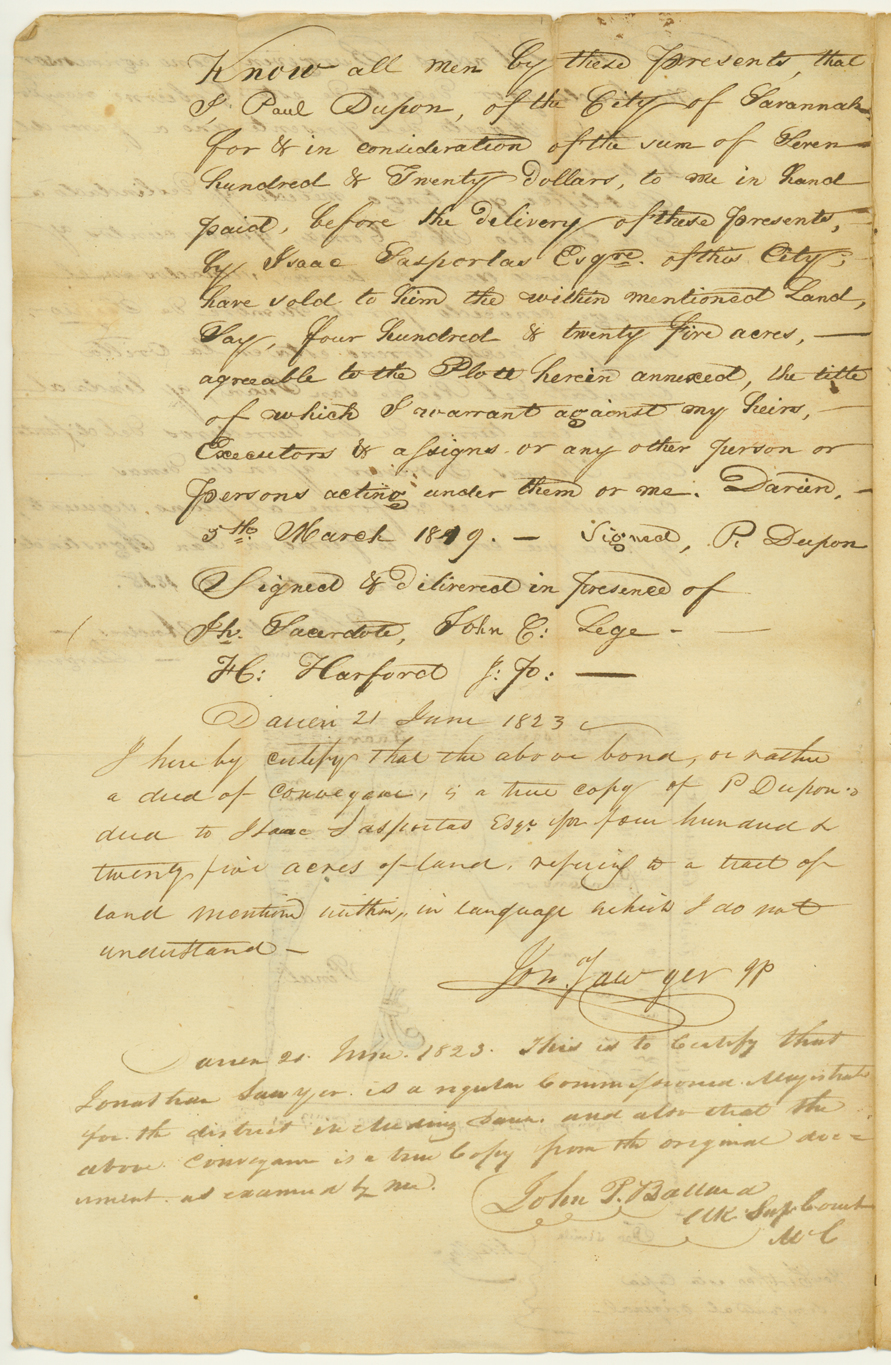 Know all men by these presents, that
I, Paul Dupon, of the City of Savannah
for & in consideration of the sum of Seven
hundred & Twenty Dollars, to me in hand
paid, before the delivery of these presents,
by Isaac Sasportas Esqre. of this City;
have sold to him the within mentioned Land,
Say, four hundred & twenty five acres, —
agreeable to the Plott herein annexed, the title
of which I warrant against my heirs, —
Executors & assigns or any other person or
persons acting under them or me. Darien, —
5th. March 1819. — Signed, P. Dupon
Signed & delivered in presence of
Jh. Sacerdote, John C: Lege - —
H: Harford J: P: —
Darien 21 June 1823
I here by certify that the above bond, or rather
a deed of conveyance, is a true copy of P Dupon's
deed to Isaac Sasportas Esqr for four hundred &
twenty five acres of land, refering to a tract of
land mentiond within, in language which I do not
understand —
Jon. Sawyer JP
Darien 21. June. 1823. This is to Certify that
Jonathan Sawyer is a regular Commissioned Magistrate
for the district including Darien and also that the
above Conveyance is a true Copy from the original doc=
ument as examined by me.
John P. Ballard
Clk Sup. Court
McC